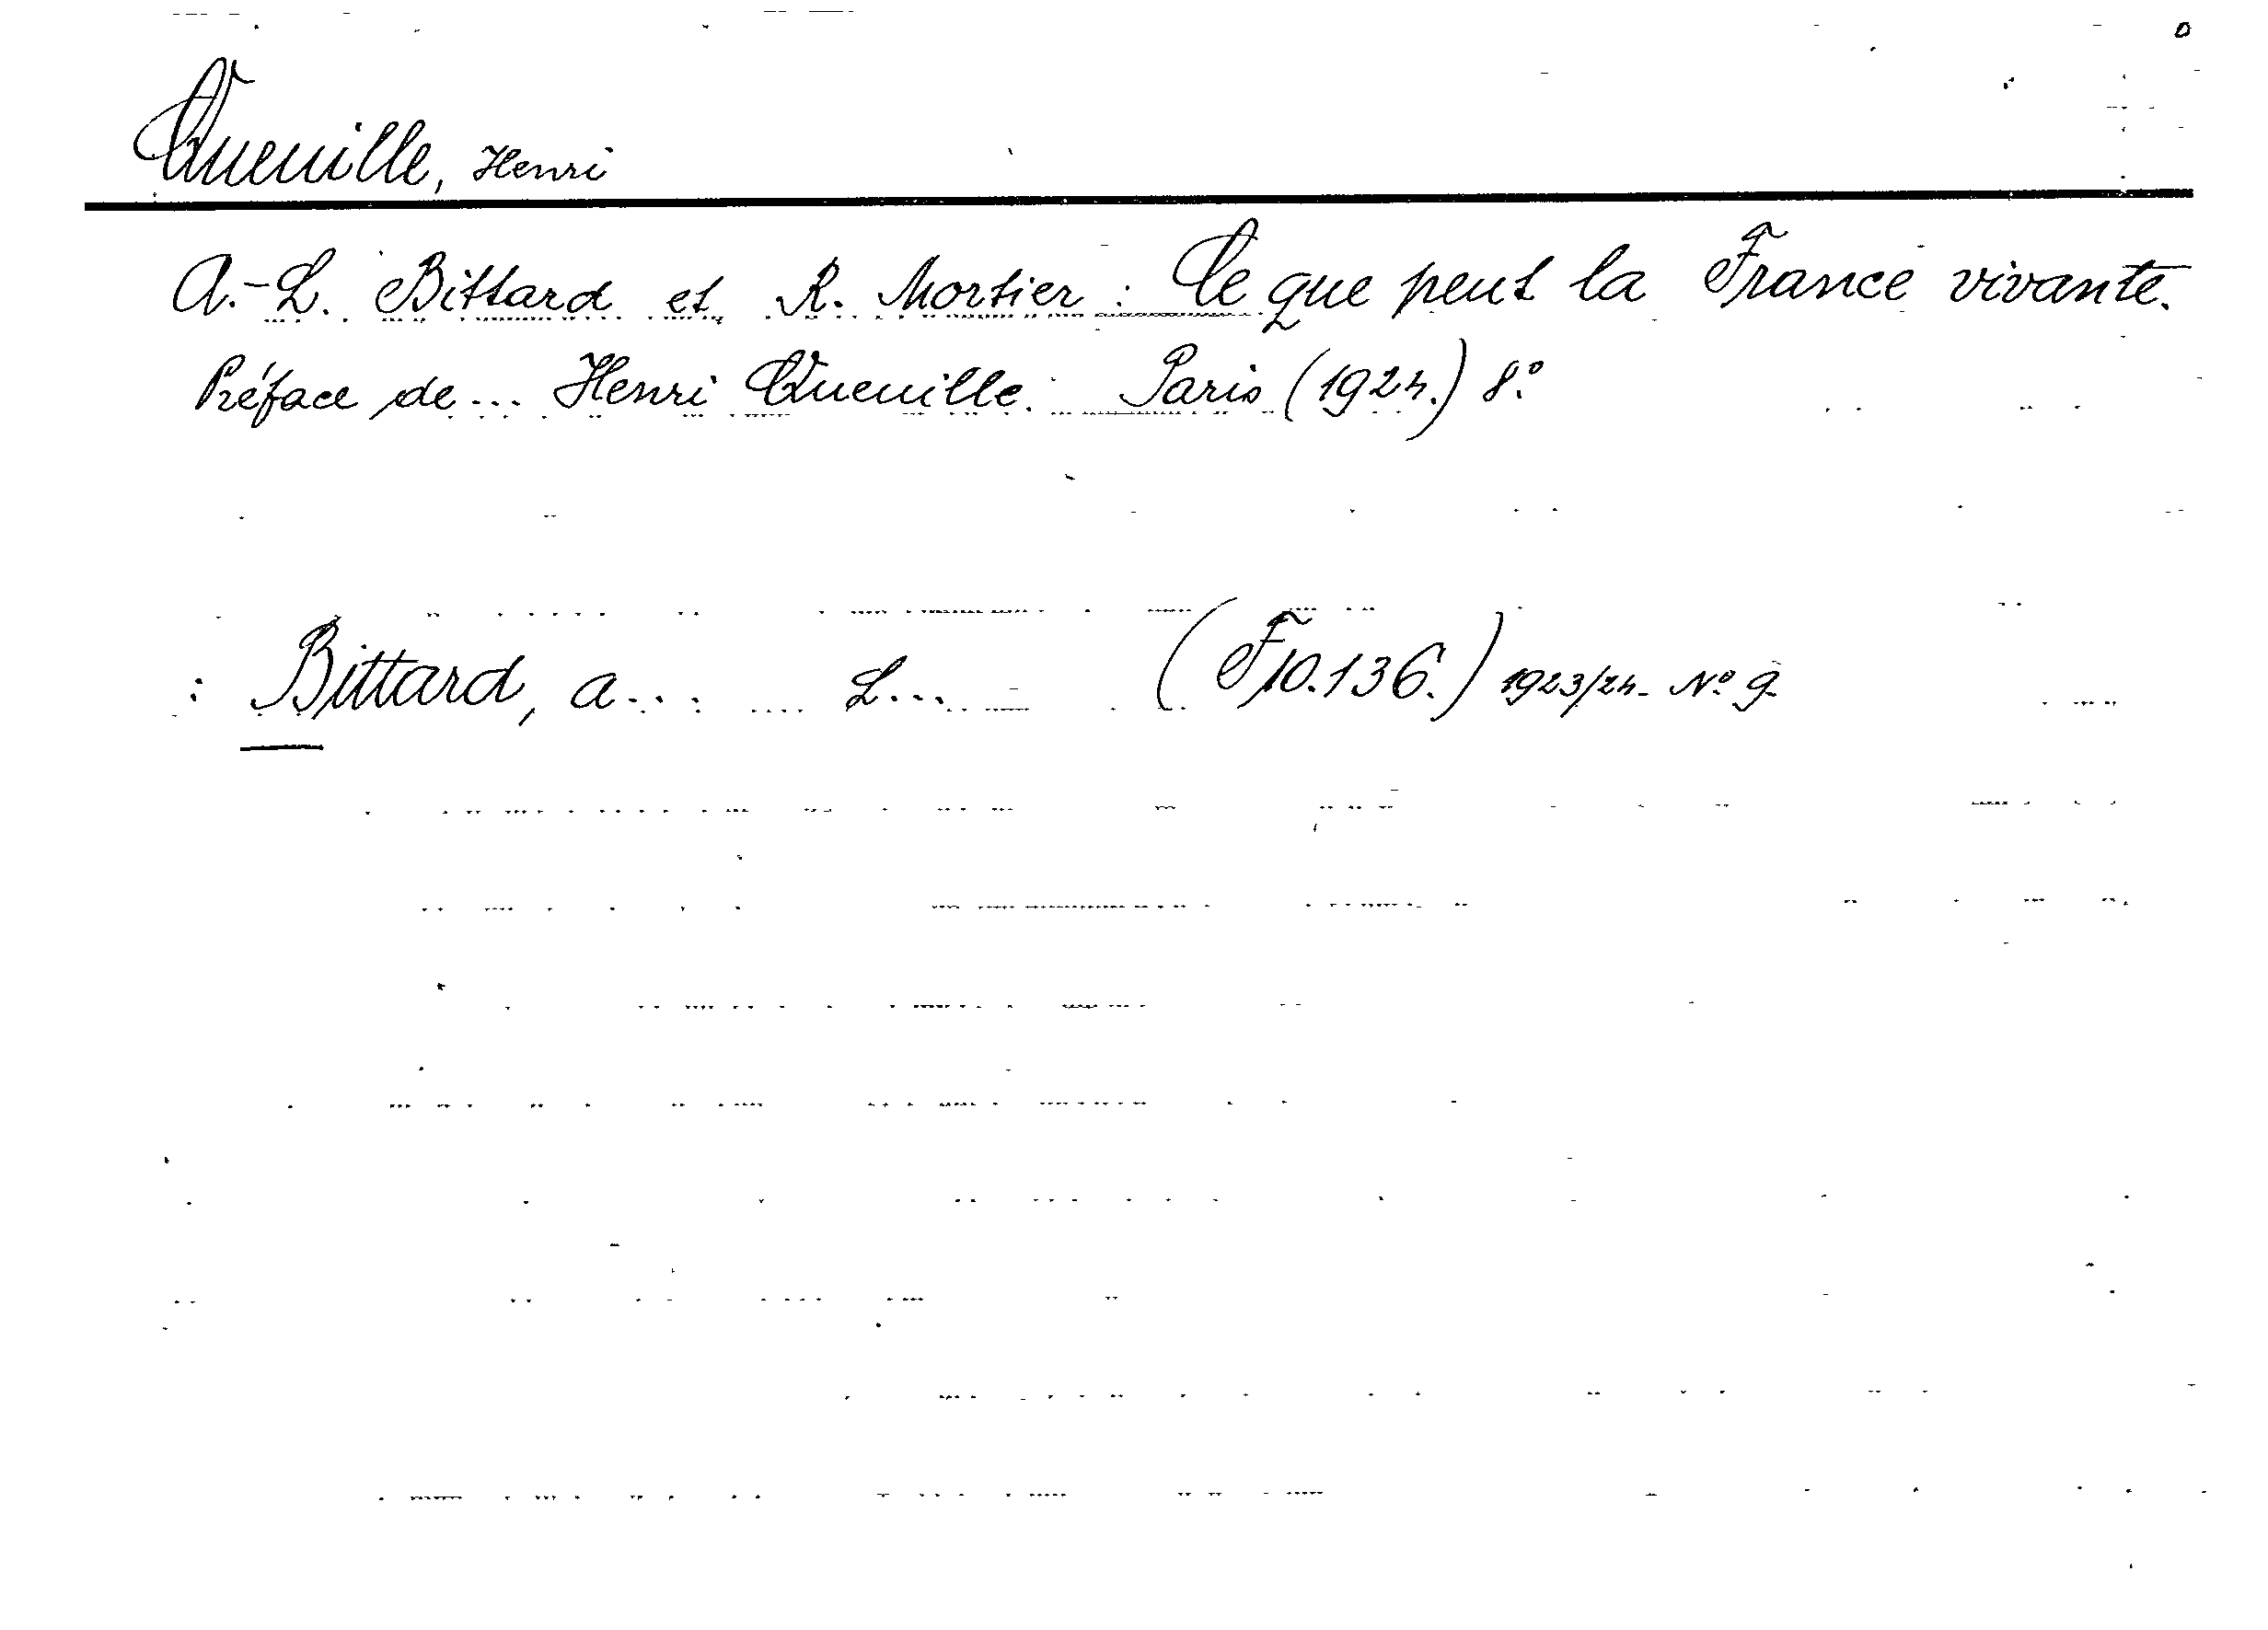 Queuille, Henri
A.-L. Bittard et R. Mortier: Ce que peut la France vivante.
Préface de... Henri Queuille. Paris (1924.) 8.º
: Bittard, A... L... (F10.136.) 1923/24. Nº 9.